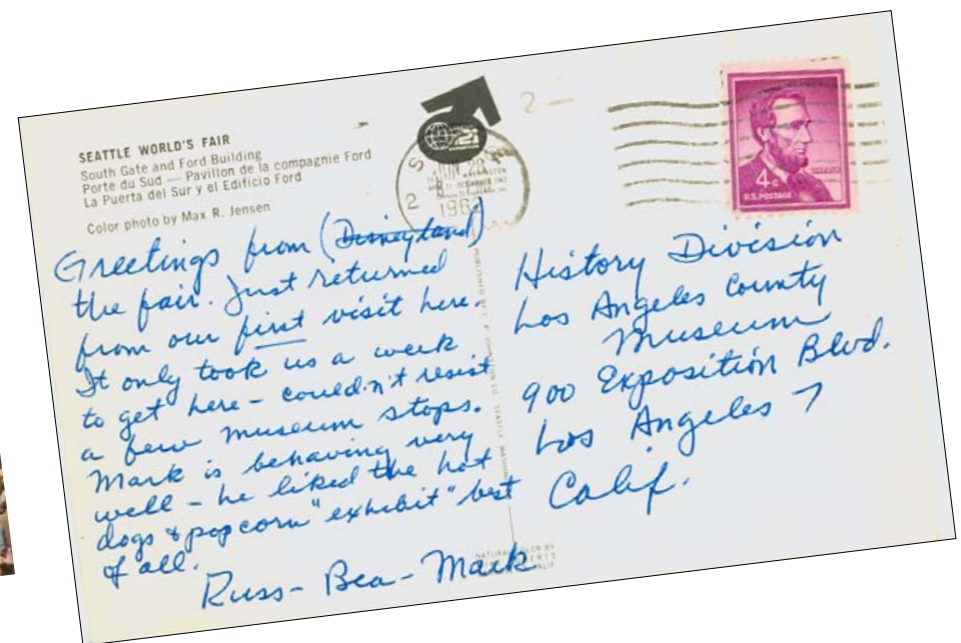 SEATTLE WORLD'S FAIR
South Gate and Ford Building
Porte du Sud — Pavillon de la compagnie Ford
La Puerta del Sur y el Edificio Ford
Color photo by Max R. Jensen
2 —
4¢
U.S. POSTAGE
Greetings from (Disneyland)
the fair. Just returned
from our first visit here.
It only took us a week
to get here – couldn't resist
a few museum stops.
Mark is behaving very
well – he liked the hot
dogs & popcorn "exhibit" best
of all.
Russ – Bea – Mark
History Division
Los Angeles County
Museum
900 Exposition Blvd.
Los Angeles 7
Calif.